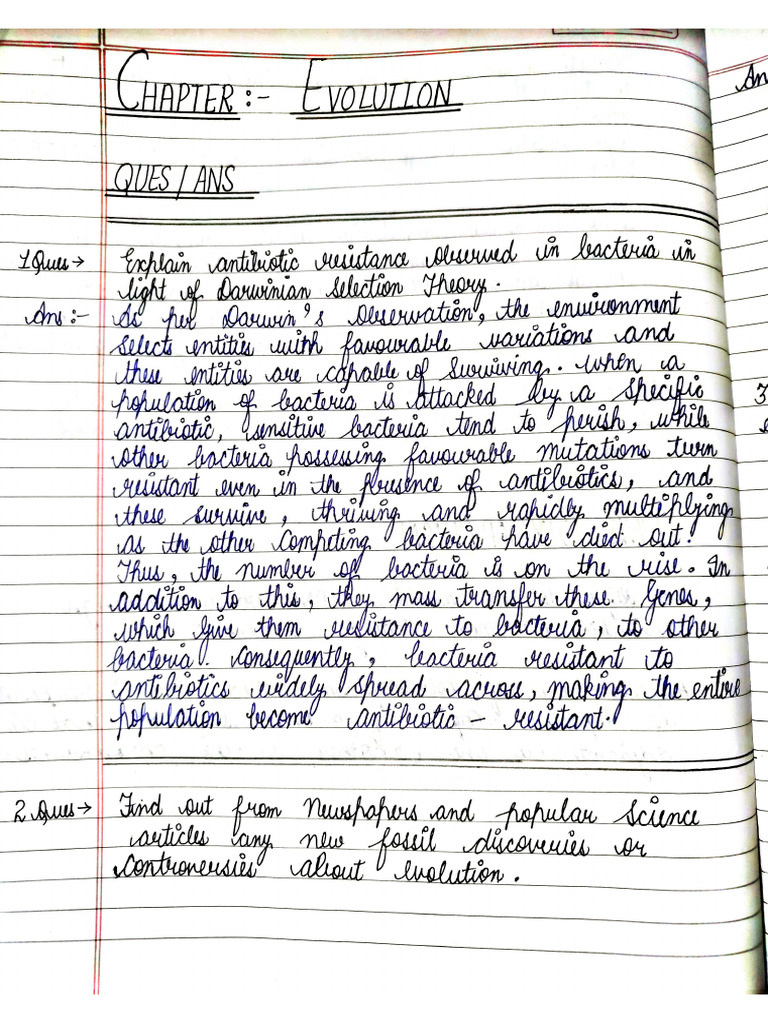 CHAPTER :- EVOLUTION
QUES / ANS
1 Ques → Explain antibiotic resistance observed in bacteria in
light of Darwinian Selection Theory.
Ans :- As per Darwin's Observation, the environment
selects entities with favourable variations and
these entities are capable of surviving. When a
population of bacteria is attacked by a specific
antibiotic, sensitive bacteria tend to perish, while
other bacteria possessing favourable mutations turn
resistant even in the presence of antibiotics, and
these survive, thriving and rapidly multiplying
as the other competing bacteria have died out.
Thus, the number of bacteria is on the rise. In
addition to this, they mass transfer these Genes,
which give them resistance to bacteria, to other
bacteria. Consequently, bacteria resistant to
antibiotics widely spread across, making the entire
population become antibiotic - resistant.
2 Ques → Find out from Newspapers and popular Science
articles any new fossil discoveries or
controversies about evolution.
An
3